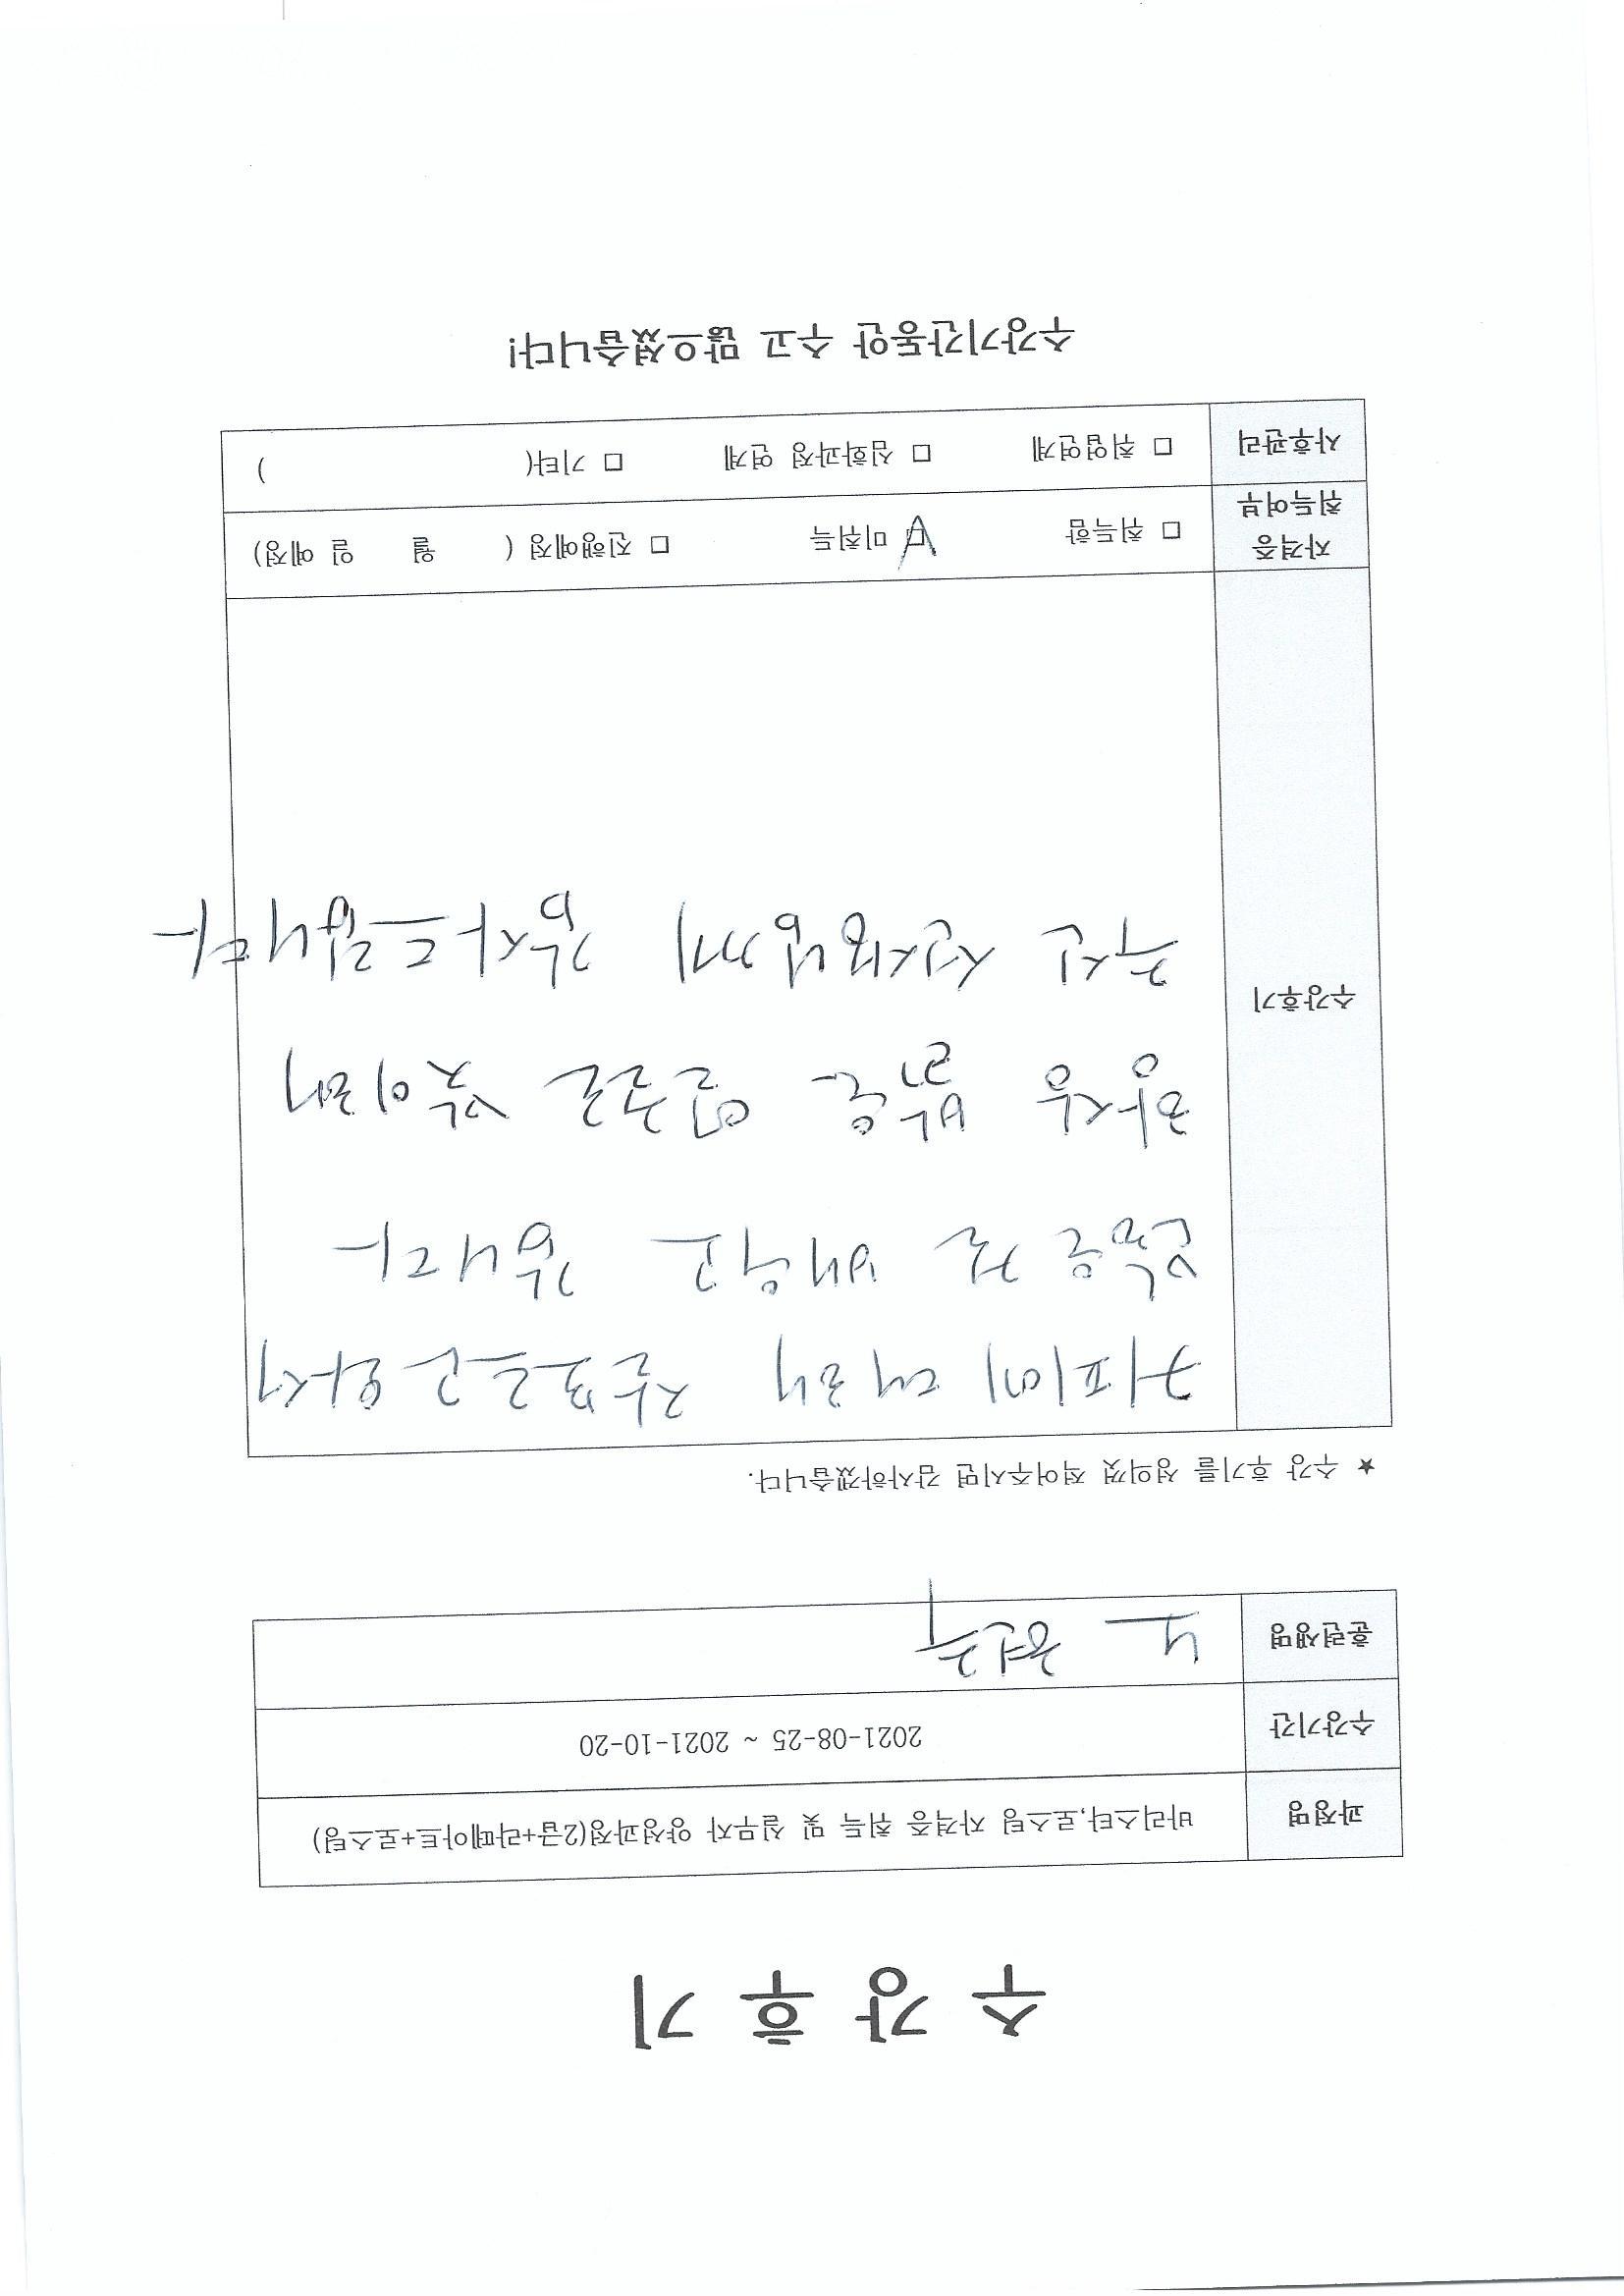 수 강 후 기
과정명 바리스타,로스팅 자격증 취득 및 실무자 양성과정(2급+라떼아트+로스팅)
수강기간 2021-08-25 ~ 2021-10-20
훈련생명 노현주
★ 수강 후기를 성의껏 적어주시면 감사하겠습니다.
수강후기
커피에 대해 하고 와서
많은 걸 배우고 갑니다
항상 밝은 얼굴로
주신 선생님께 감사드립니다
자격증 취득여부 □ 취득함 □ 미취득 □ 진행예정 ( 월 일 예정)
사후관리 □ 취업연계 □ 심화과정 연계 □ 기타( )
수강기간동안 수고 많으셨습니다!